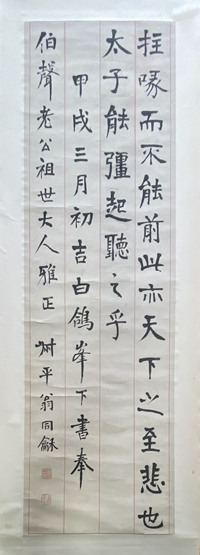 拄喙而不能前此亦天下之至悲也
太子能彊起聽之乎
甲戌三月初吉白鴿峯下書奉
伯聲老公祖世大人雅正 叔平翁同龢